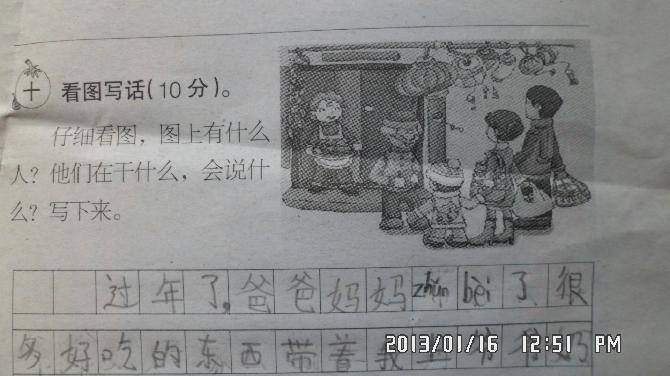 十 看图写话(10分)。
仔细看图，图上有什么
人？他们在干什么，会说什
么？写下来。
过年了。爸爸妈妈zhǔn bèi了很
多好吃的东西带着我
2013/01/16 12:51 PM